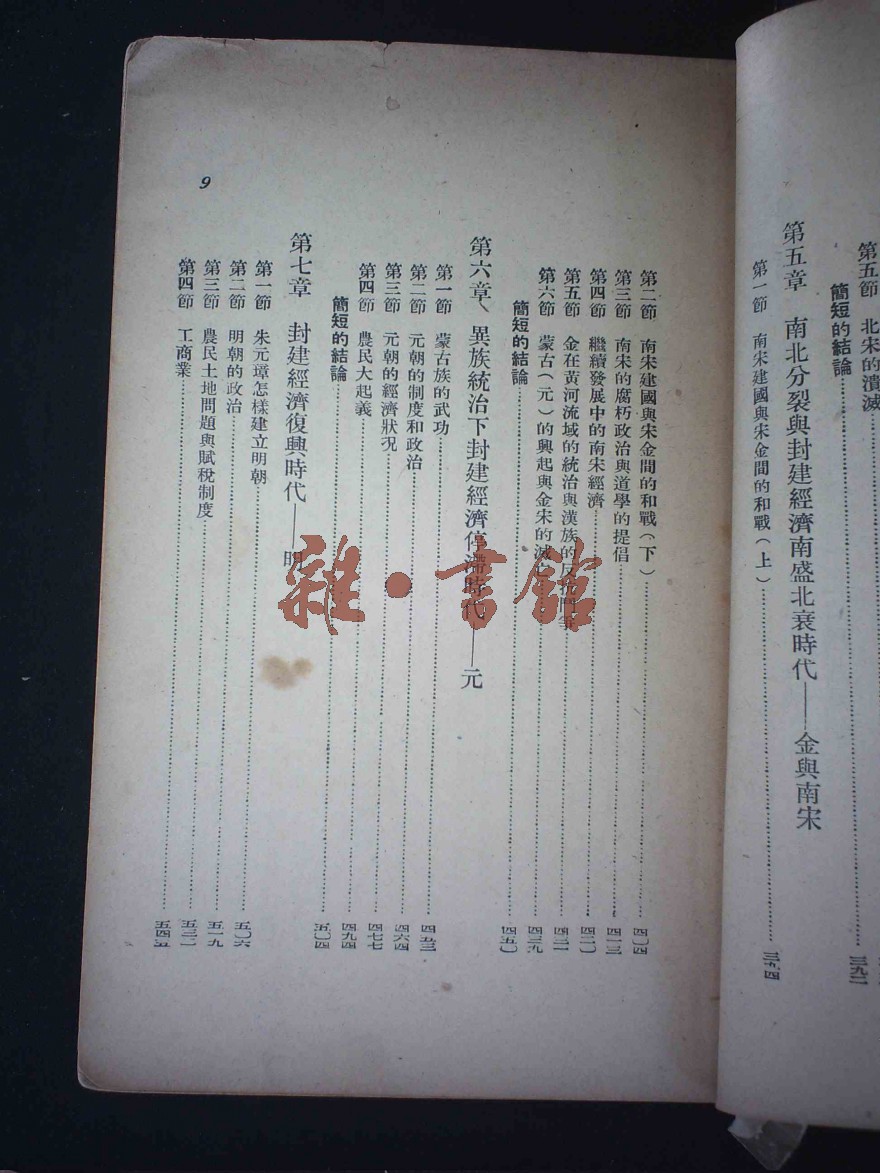 第五節　北宋的潰滅
簡短的結論 三九二
第五章　南北分裂與封建經濟南盛北衰時代——金與南宋
第一節　南宋建國與宋金間的和戰（上） 三九四
第二節　南宋建國與宋金間的和戰（下） 四〇四
第三節　南宋的腐朽政治與道學的提倡 四一三
第四節　繼續發展中的南宋經濟
第五節　金在黃河流域的統治與漢族的反抗鬥爭 四三一
第六節　蒙古（元）的興起與金宋的滅亡 四三九
簡短的結論 四五〇
第六章、異族統治下封建經濟停滯時代——元
第一節　蒙古族的武功 四五三
第二節　元朝的制度和政治 四六四
第三節　元朝的經濟狀況 四七七
第四節　農民大起義 四九四
簡短的結論 五〇四
第七章　封建經濟復興時代——明
第一節　朱元璋怎樣建立明朝 五〇六
第二節　明朝的政治 五一九
第三節　農民土地問題與賦稅制度 五三二
第四節　工商業 五四五
9
雜·書館